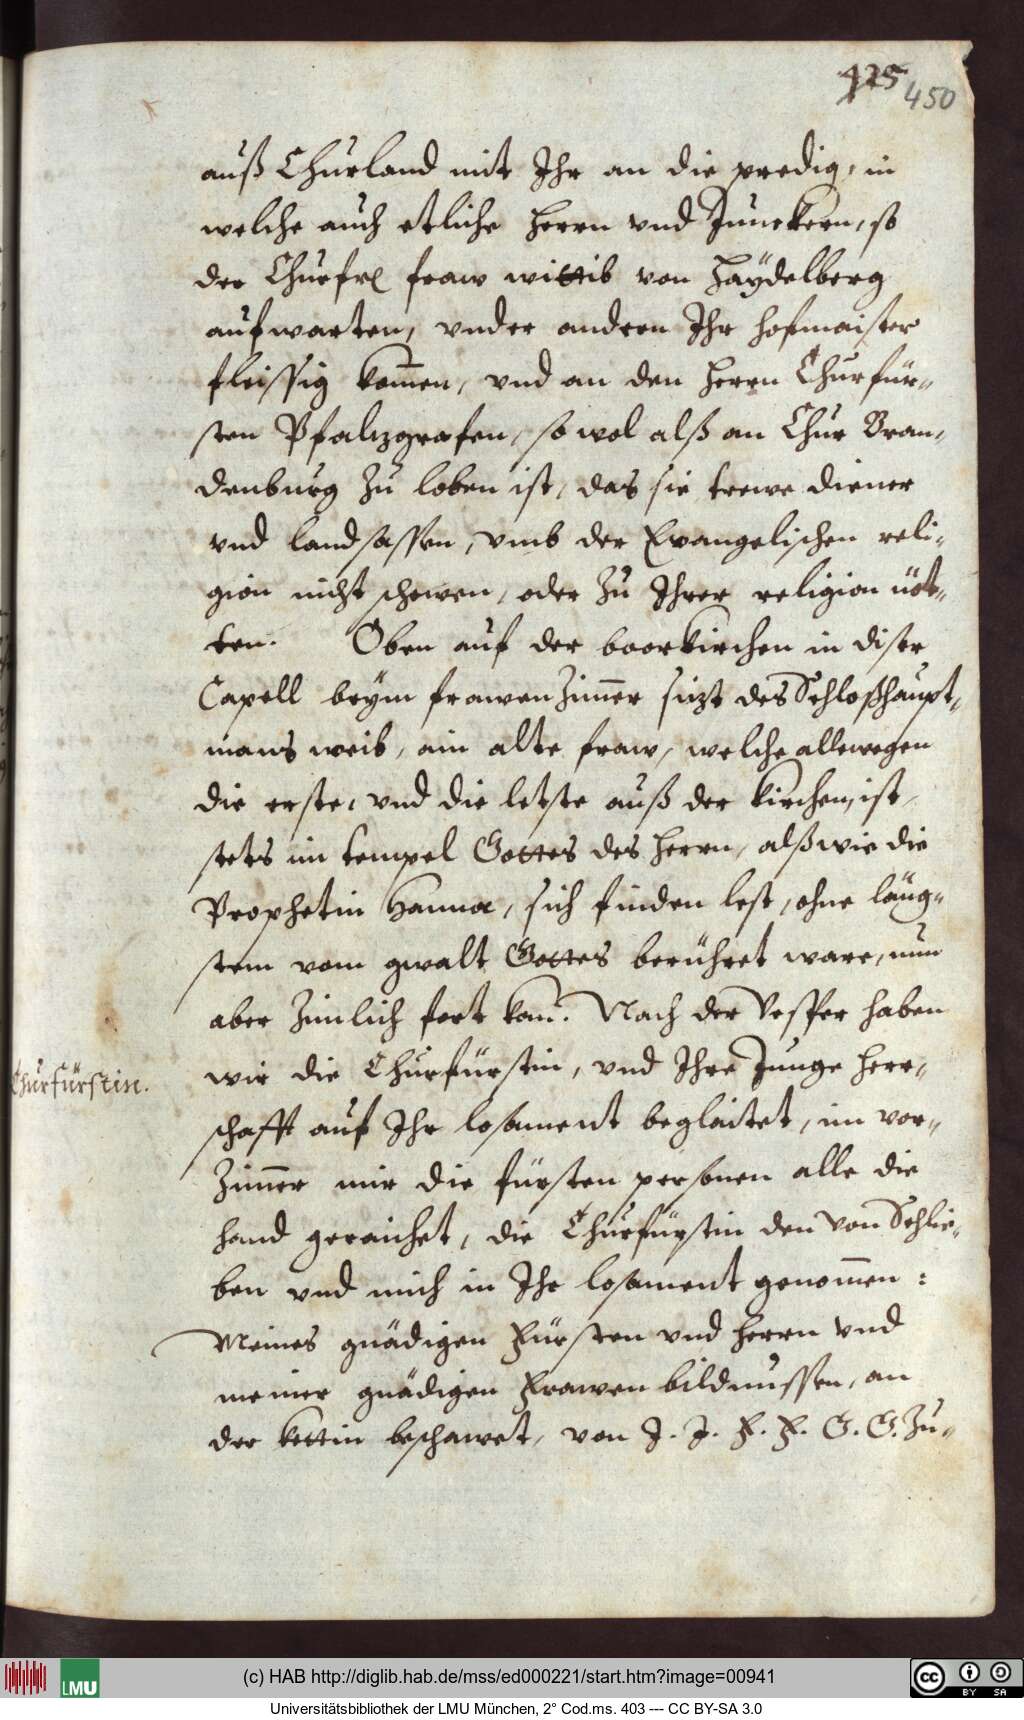 425 450
auß Churland mit Ihr an die predig, in
welche auch etliche Herrn vnd Junckern, so
der Churfrl fraw wittib von Haÿdelberg
aufwarten, vnder andern Ihr hofmaister
fleissig kom̄en, vnd an den Herrn Churfür-
sten Pfalzgrafen, so wol alß an Chur Bran-
denburg zu loben ist, das sie trewe diener
vnd landsassen, vmb der Evangelischen reli-
gion nicht schewen, oder zu Ihrer religion nöt-
ten. Oben auf der boorkirchen in diser
Capell beÿm frawenzim̄er sizt des Schloßhaupt-
mans weib, ain alte fraw, welche allewegen
die erste, vnd die letste auß der kirchen, ist
stets im tempel Gottes des Herrn, alß wie die
Prophetin Hanna, sich finden lest, ohne läng-
stem vom gwalt Gottes berühret ware, nun
aber zimlich fort kan. Nach der Vesper haben
Churfürstin.
wir die Churfürstin, vnd Ihre Junge Herr-
schafft auf Ihr losament beglaitet, im vor-
zim̄er mir die fürsten personen alle die
hand geraichet, die Churfürstin den von Schlie-
ben vnd mich in Ihr losament genom̄en:
Meines gnädigen Fürsten vnd Herrn vnd
meiner gnädigen Frawen bildnussen, an
der kettin beschawet, von J. J. F. F. G. G. zu-
(c) HAB http://diglib.hab.de/mss/ed000221/start.htm?image=00941
Universitätsbibliothek der LMU München, 2° Cod.ms. 403 --- CC BY-SA 3.0
LMU
CC BY SA